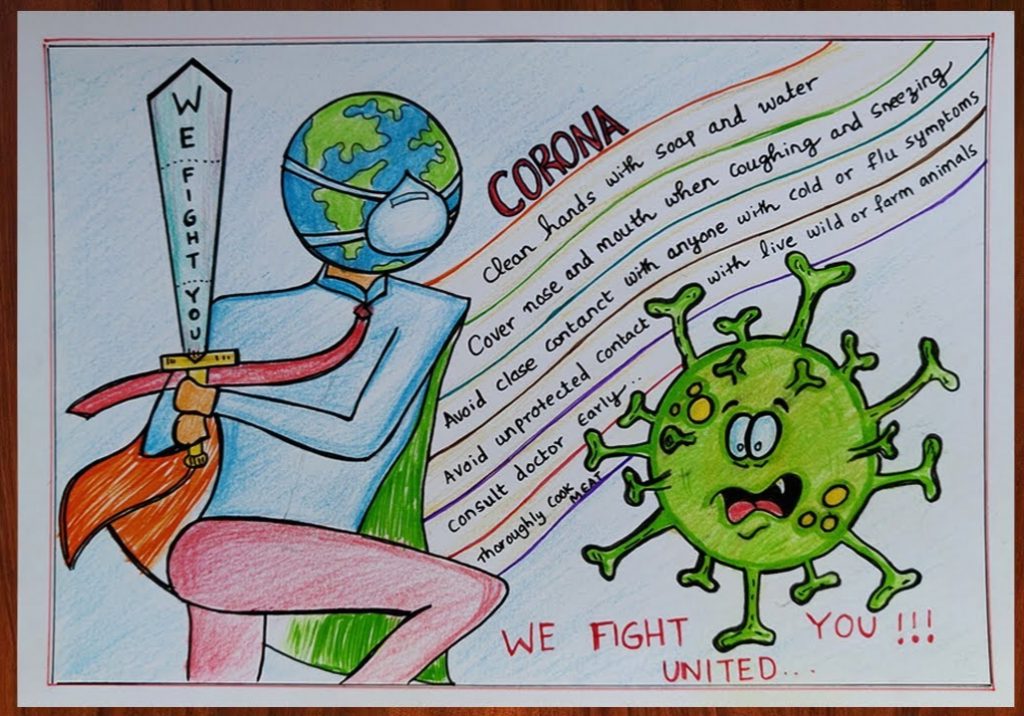 WE
FIGHT
YOU
CORONA
Clean hands with soap and water
Cover nose and mouth when coughing and sneezing
Avoid close contanct with anyone with cold or flu symptoms
Avoid unprotected contact with live wild or farm animals
Consult doctor early...
Thoroughly cook MEAT
WE FIGHT YOU!!!
UNITED...